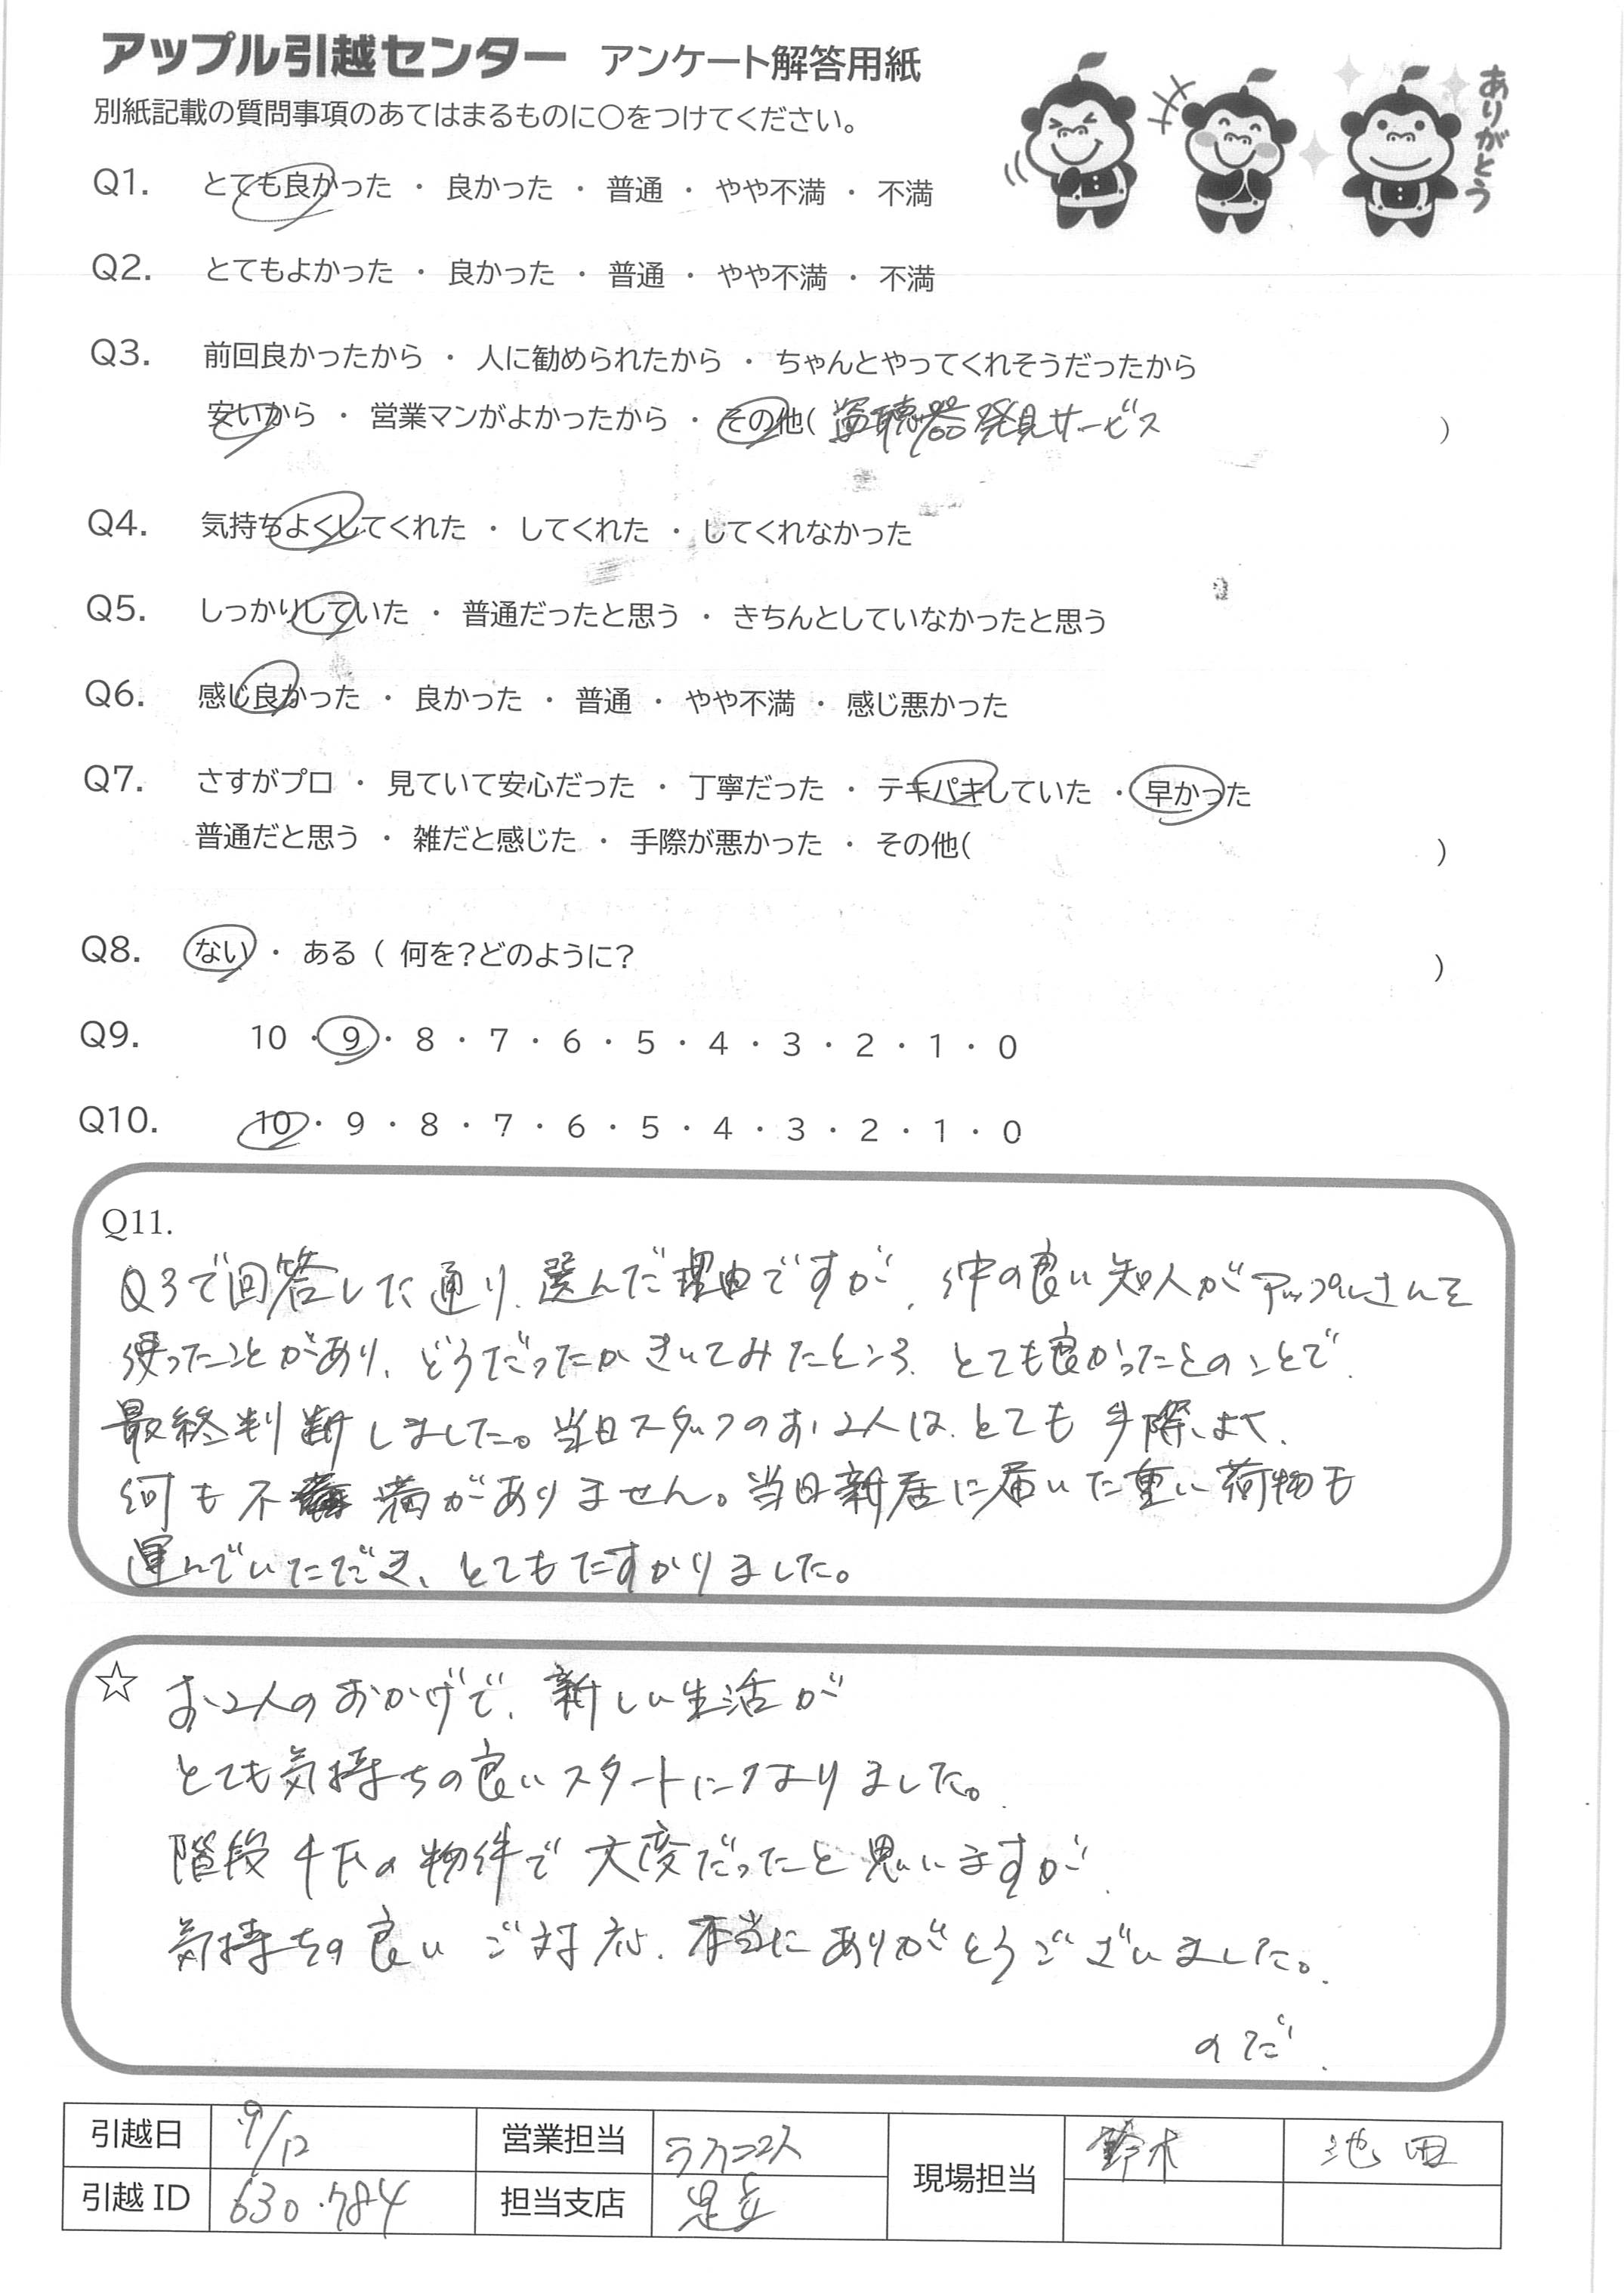 アップル引越センター アンケート解答用紙
別紙記載の質問事項のあてはまるものに○をつけてください。
ありがとう
Q1. とても良かった ・ 良かった ・ 普通 ・ やや不満 ・ 不満
Q2. とてもよかった ・ 良かった ・ 普通 ・ やや不満 ・ 不満
Q3. 前回良かったから ・ 人に勧められたから ・ ちゃんとやってくれそうだったから
安いから ・ 営業マンがよかったから ・ その他( 盗聴器発見サービス )
Q4. 気持ちよくしてくれた ・ してくれた ・ してくれなかった
Q5. しっかりしていた ・ 普通だったと思う ・ きちんとしていなかったと思う
Q6. 感じ良かった ・ 良かった ・ 普通 ・ やや不満 ・ 感じ悪かった
Q7. さすがプロ ・ 見ていて安心だった ・ 丁寧だった ・ テキパキしていた ・ 早かった
普通だと思う ・ 雑だと感じた ・ 手際が悪かった ・ その他( )
Q8. ない ・ ある ( 何を?どのように? )
Q9. 10 ・ 9 ・ 8 ・ 7 ・ 6 ・ 5 ・ 4 ・ 3 ・ 2 ・ 1 ・ 0
Q10. 10 ・ 9 ・ 8 ・ 7 ・ 6 ・ 5 ・ 4 ・ 3 ・ 2 ・ 1 ・ 0
Q11.
Q3で回答した通り、選んだ理由ですが、仲の良い知人がアップルさんを
使ったことがあり、どうだったかきいてみたところ、とても良かったとのことで、
最終判断しました。当日スタッフのお2人は、とても手際よく、
何も不満がありません。当日新居に届いた重い荷物も
運んでいただき、とてもたすかりました。
☆ お2人のおかげで、新しい生活が
とても気持ちの良いスタートになりました。
階段 の物件で大変だったと思いますが、
気持ちの良いご対応、本当にありがとうございました。
のだ
引越日 9/12 営業担当 現場担当 鈴木 池田
引越 ID 630.784 担当支店 足立